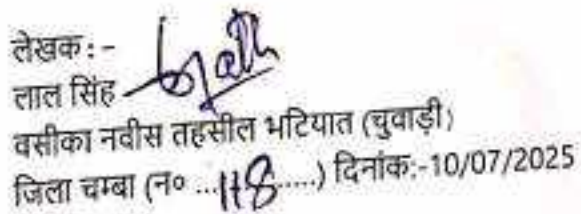 लेखक:-
लाल सिंह
वसीका नवीस तहसील भटियात (चुवाड़ी)
जिला चम्बा (न० ...118.....) दिनांक:-10/07/2025